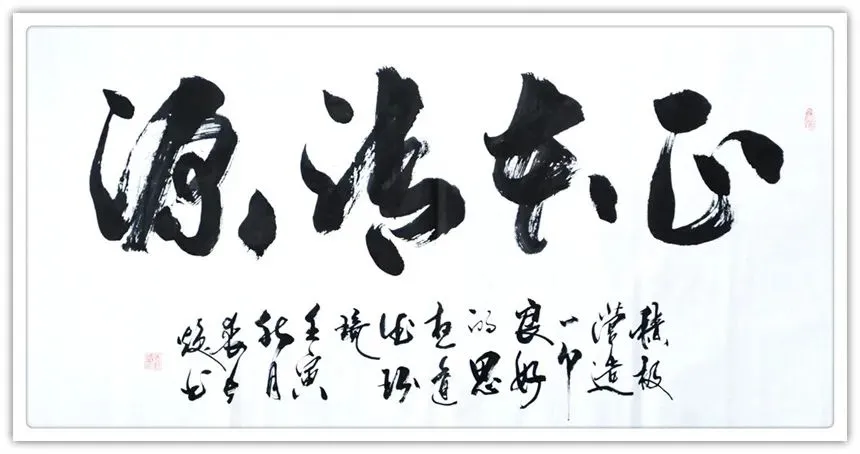 正本清源
積极
营造
一个
良好
的思
想道
德环
境
壬寅
秋月
书